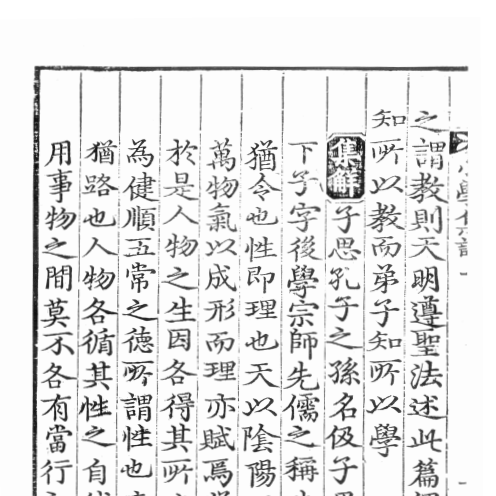 之謂教則天明遵聖法述此篇
知所以教而弟子知所以學
集解子思孔子之孫名伋子
下子字後學宗師先儒之稱
猶令也性即理也天以陰陽
萬物氣以成形而理亦賦焉
於是人物之生因各得其所
為健順五常之德所謂性也
猶路也人物各循其性之自
用事物之間莫不各有當行